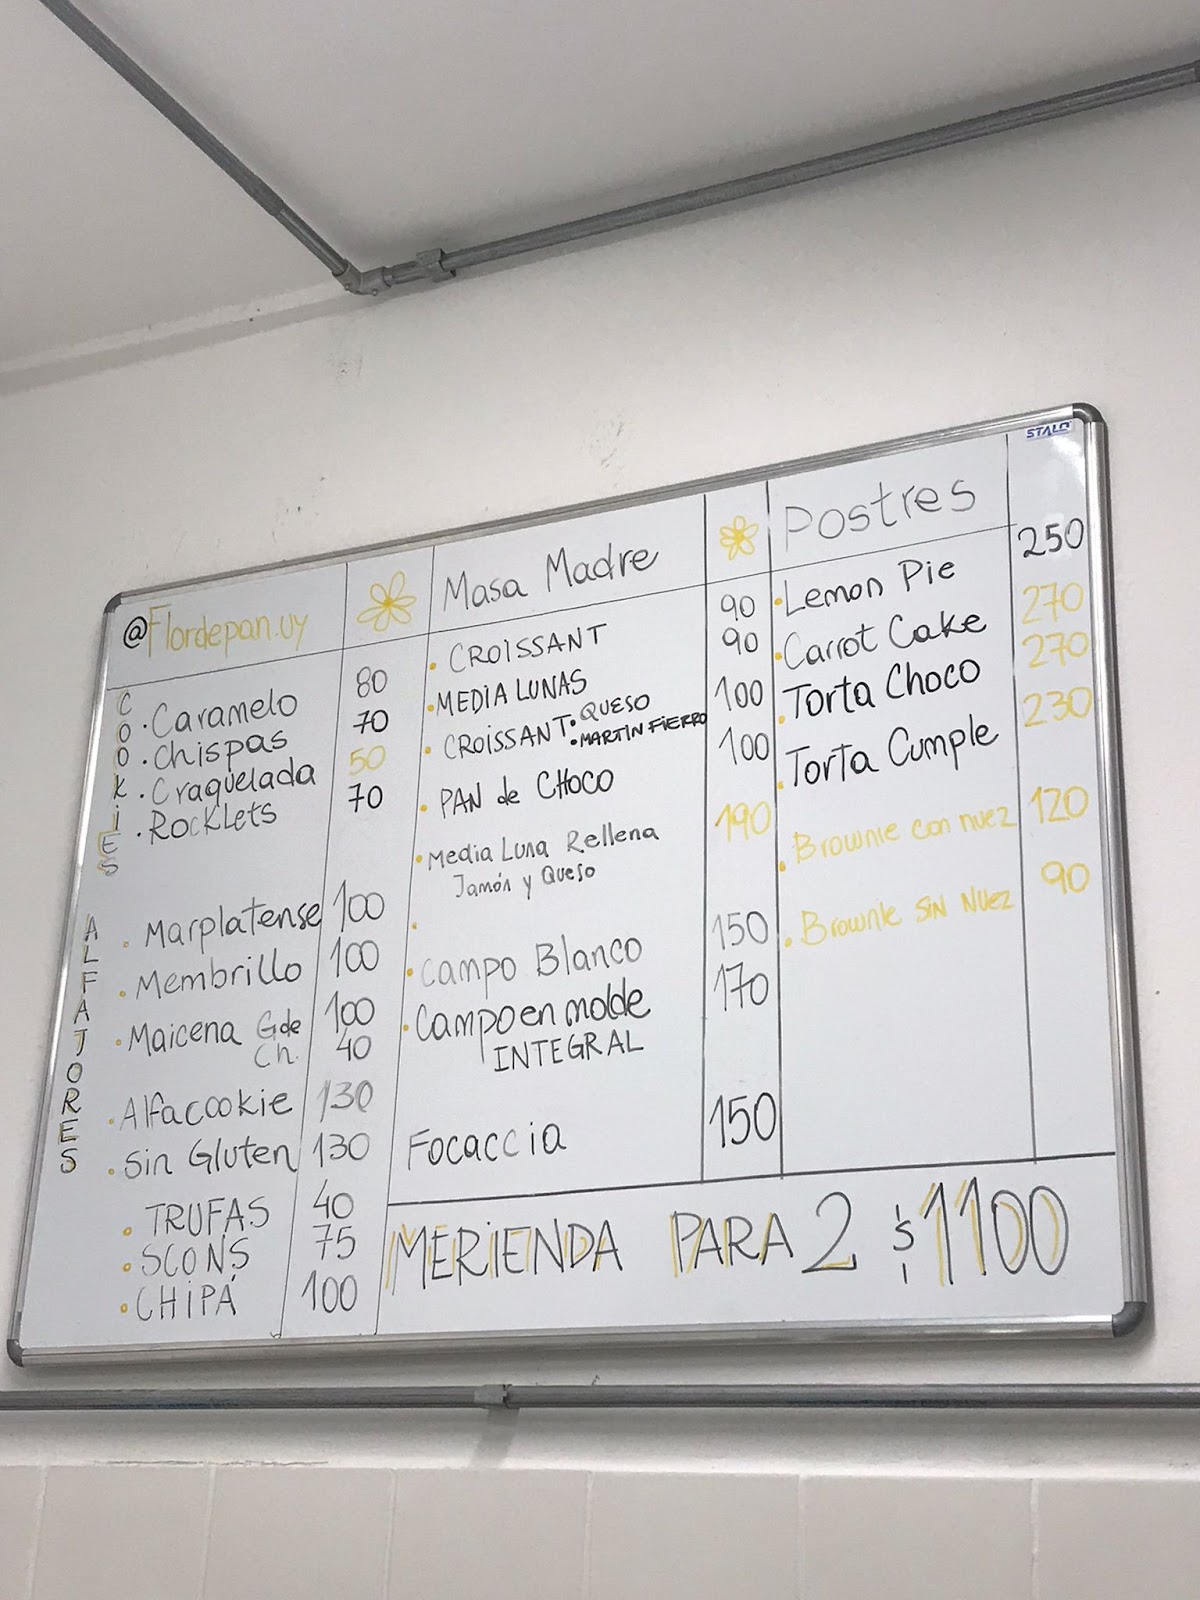 STALO
@Flordepan.uy
COOKiES
. Caramelo 80
. Chispas 70
. Craquelada 50
. Rocklets 70
ALFAJORES
. Marplatense 100
. Membrillo 100
. Maicena Gde 100
Ch. 40
. Alfacookie 130
. Sin Gluten 130
. TRUFAS 40
. SCONS 75
. CHiPÁ 100
Masa Madre
. CROISSANT 90
. MEDIA LUNAS 90
. CROISSANT • QUESO 100
• MARTIN FIERRO
. PAN de CHOCO 100
. Media Luna Rellena 190
Jamón y Queso
. Campo Blanco 150
. Campo en molde 170
INTEGRAL
Focaccia 150
Postres
. Lemon Pie 250
. Carrot Cake 270
. Torta Choco 270
. Torta Cumple 230
. Brownie con nuez 120
. Brownie SiN Nuez 90
MERiENDA PARA 2 $ 1100